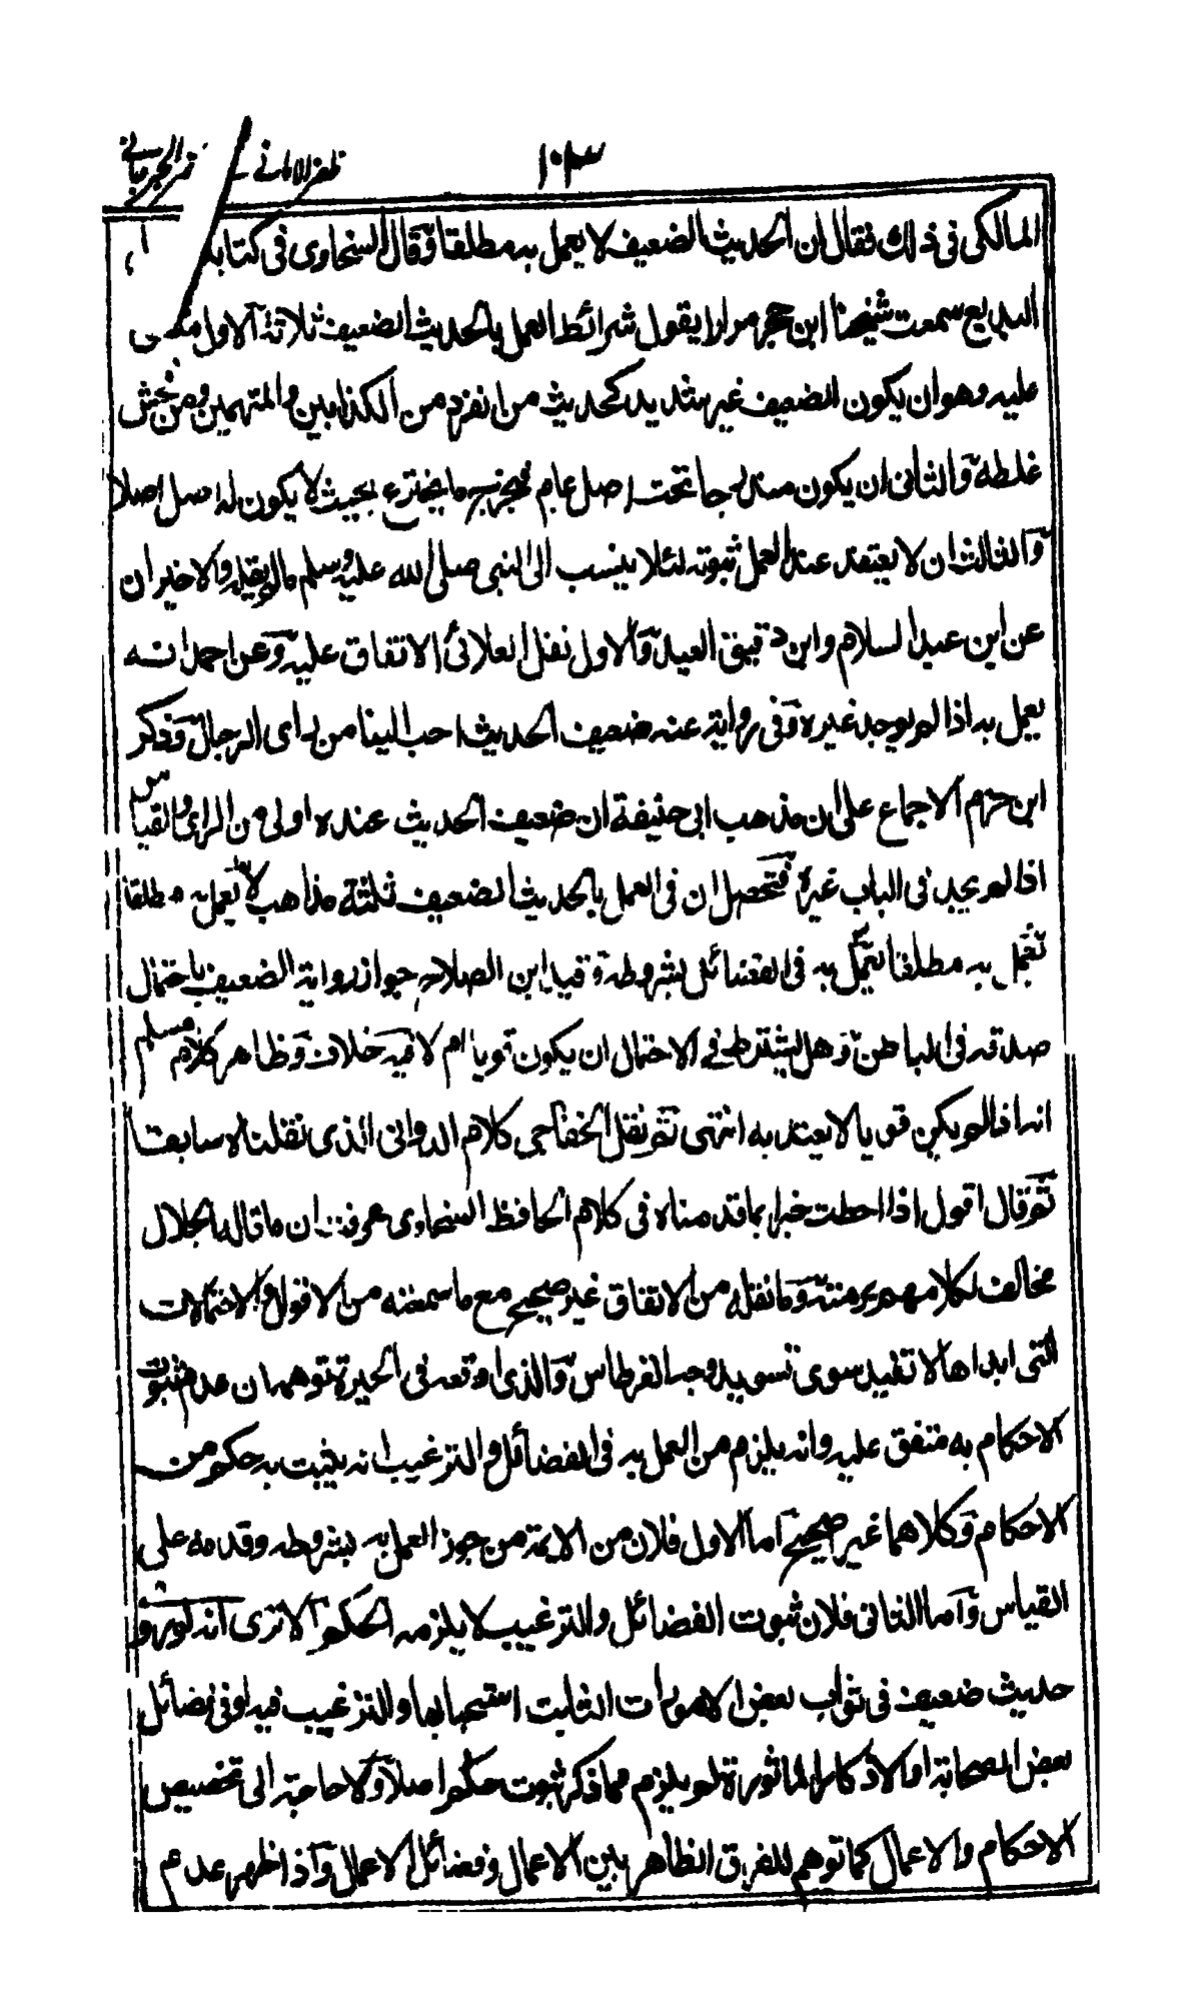 ظفر الامانى
١٠٣
المالكى فى ذلك فقال ان الحديث الضعيف لا يعمل به مطلقا وقال السخاوى فى كتابه
البديع سمعت شيخنا ابن حجر مرارا يقول شرائط العمل بالحديث الضعيف ثلاثة الاول متفق
عليه وهو ان يكون الضعيف غير شديد كحديث من انفرد من الكذابين والمتهمين ومن فحش
غلطه والثانى ان يكون مندرجا تحت اصل عام فيخرج ما يخترع بحيث لا يكون له اصل اصلا
والثالث ان لا يعتقد عند العمل ثبوته لئلا ينسب الى النبى صلى الله عليه وسلم مالم يقله والاخيران
عن ابن عبد السلام وابن دقيق العيد والاول نقل العلائى الاتفاق عليه وعن احمد انه
يعمل به اذا لم يوجد غيره وفى رواية عنه ضعيف الحديث احب الينا من راى الرجال وذكر
ابن حزم الاجماع على ان مذهب ابى حنيفة ان ضعيف الحديث عنده اولى من الراى والقياس
اذا لم يجد فى الباب غيره فتحصل ان فى العمل بالحديث الضعيف ثلثة مذاهب لا يعمل به مطلقا
يعمل به مطلقا يعمل به فى الفضائل بشروطه وقيد ابن الصلاح جواز رواية الضعيف باحتمال
صدقه فى الباطن وهل يشترط فى الاحتمال ان يكون قويا ام لا فيه خلاف وظاهر كلام مسلم
انه اذا لم يكن قويا لا يعتد به انتهى ثم نقل الخفاجى كلام الدوانى الذى نقلناه سابقا
ثم قال اقول اذا احطت خبرا بما قدمناه فى كلام الحافظ السخاوى عرفت ان ما قاله الجلال
مخالف لكلامهم برمته وما نقله من الاتفاق غير صحيح مع ما سمعته من الاقوال والاحتمالات
التى ابداها لا تفيد سوى تسويد وجه القرطاس والذى اوقعه فى الحيرة توهمه ان عدم ثبوت
الاحكام به متفق عليه وانه يلزم من العمل به فى الفضائل والترغيب انه يثبت به حكم من
الاحكام وكلاهما غير صحيح اما الاول فلان من الائمة من جوز العمل به بشروطه وقدمه على
القياس واما الثانى فلان ثبوت الفضائل والترغيب لا يلزمه الحكم الا ترى انه لو روى
حديث ضعيف فى ثواب بعض الامورات الثابت استحبابها والترغيب فيه او فى فضائل
بعض الصحابة او الاذكار الماثورة لم يلزم مما ذكر ثبوت حكم اصلا ولا حاجة الى تخصيص
الاحكام والاعمال كما توهم للفرق الظاهر بين الاعمال وفضائل الاعمال واذا ظهر عدم